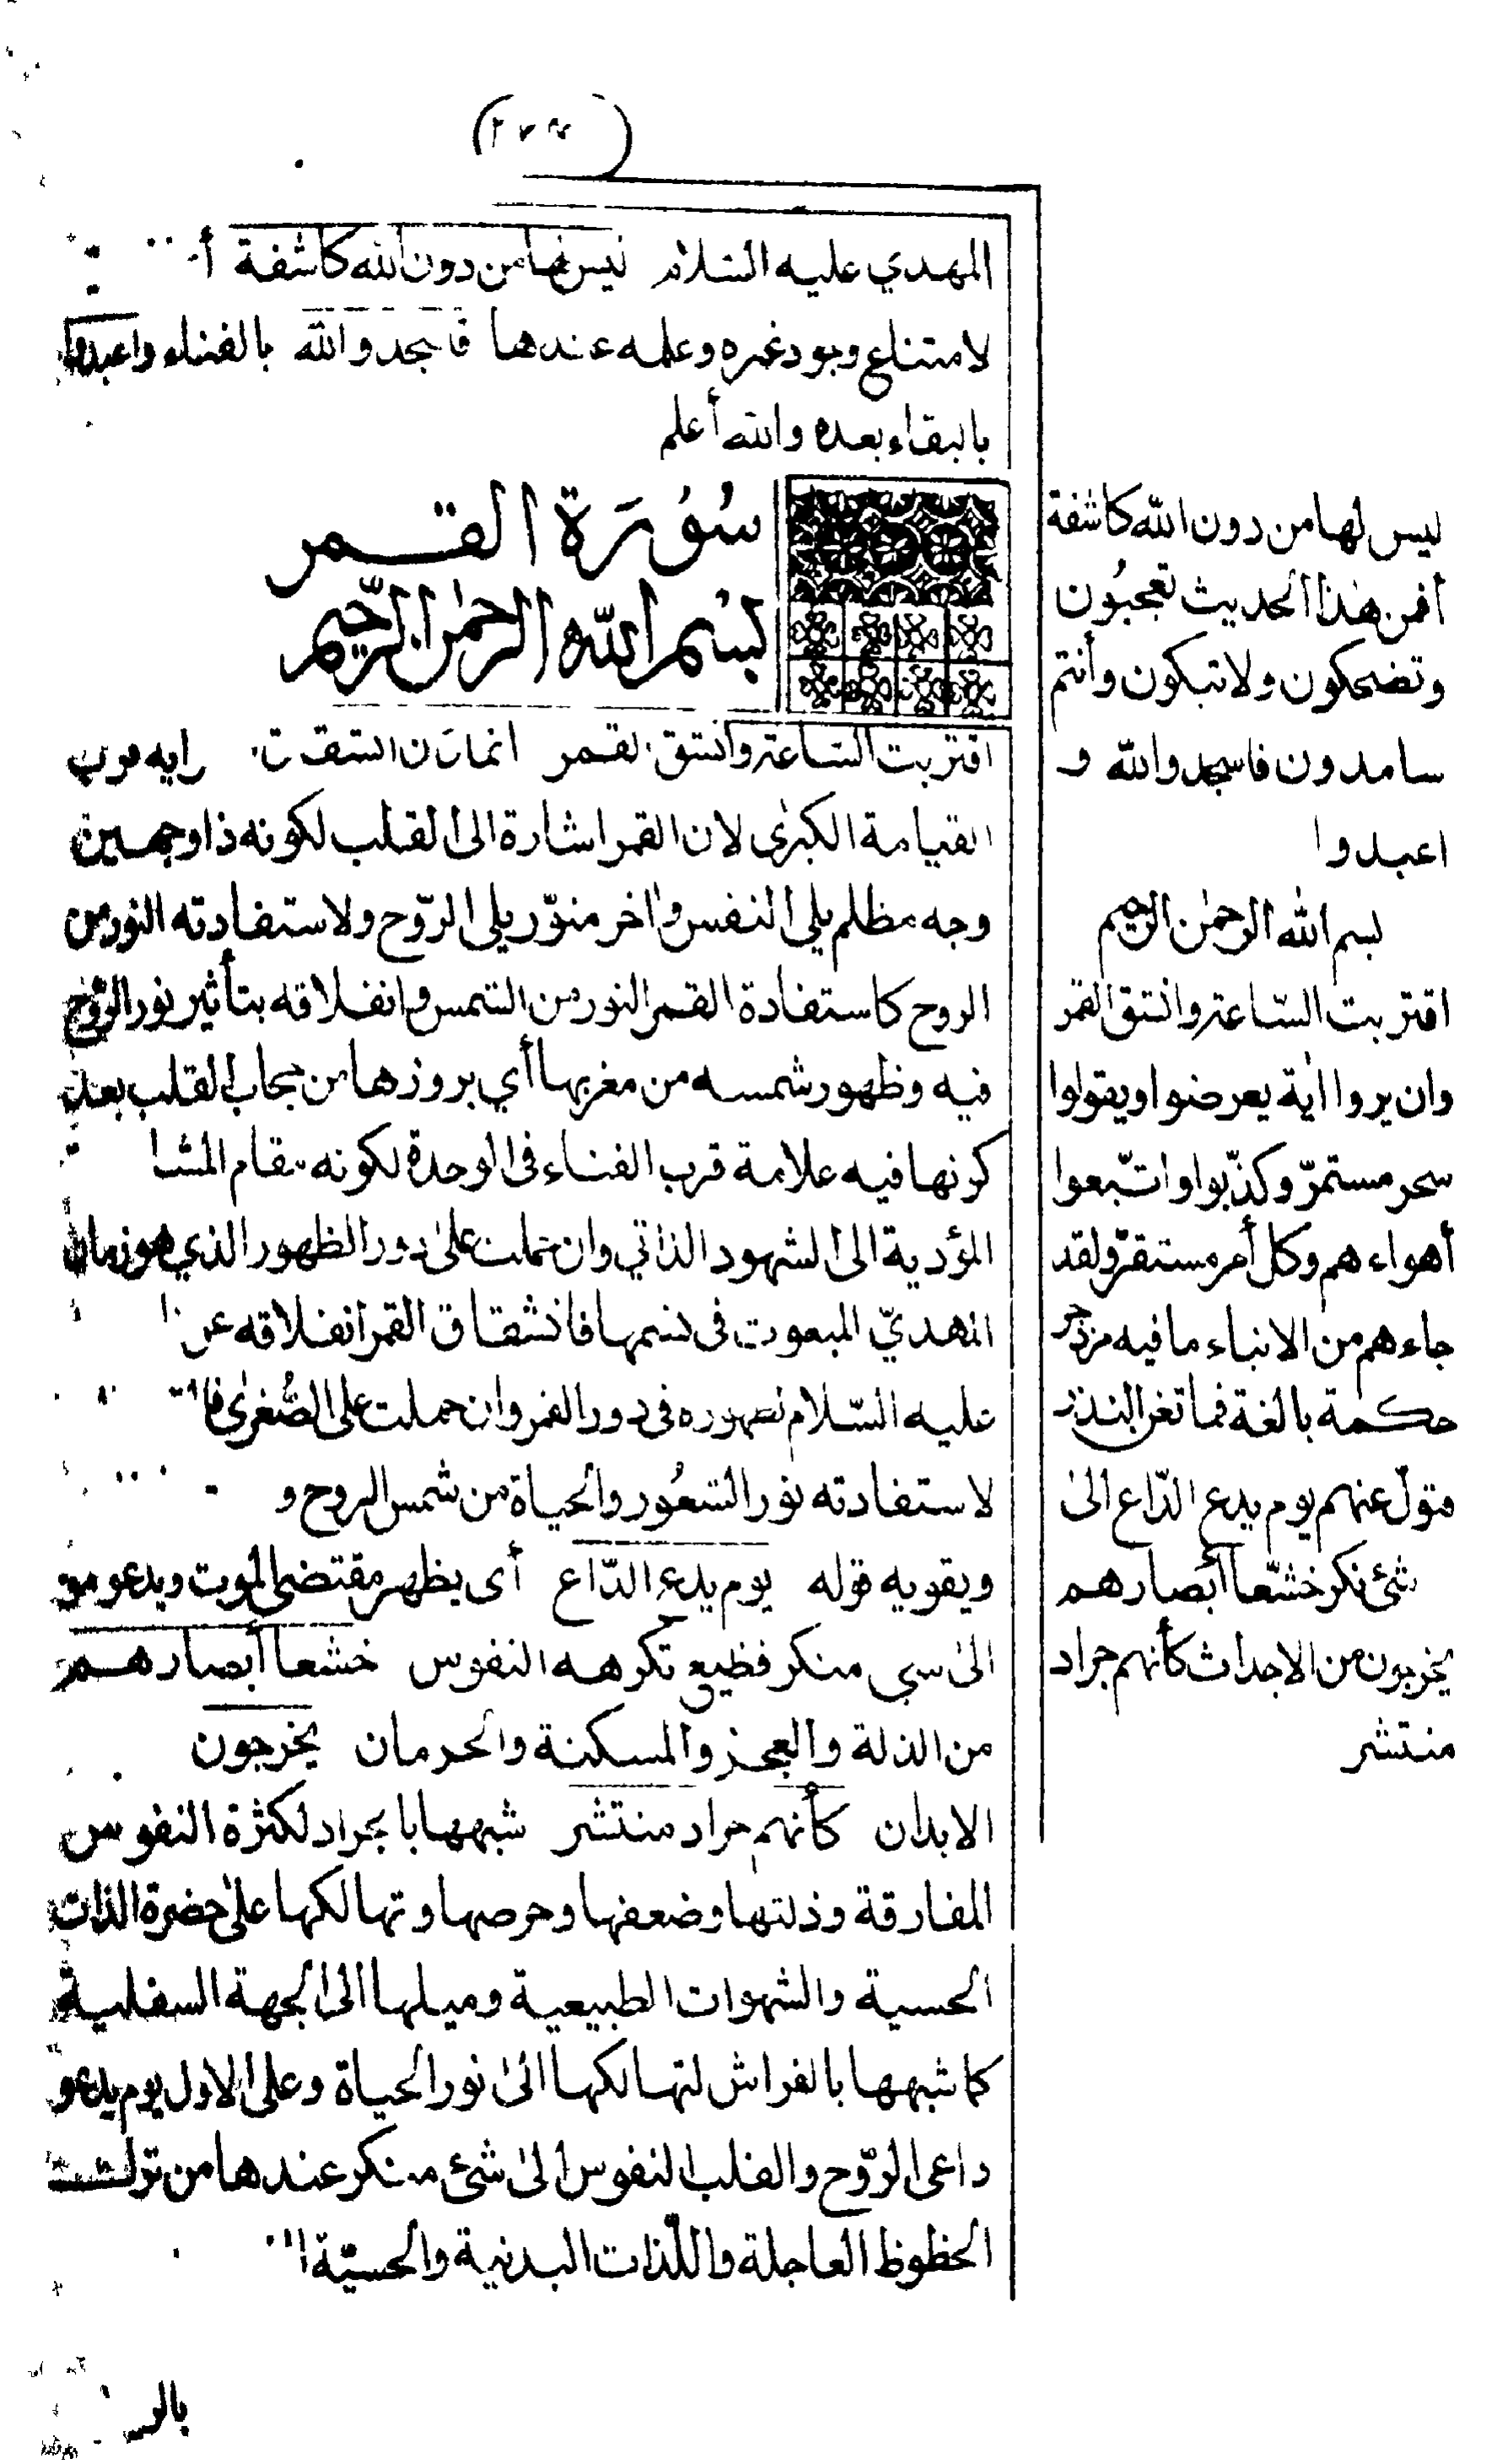 المهدي عليه السلام ليس لها من دون الله كاشفة
لامتناع وجود غيره وعلمه عندها فاسجدوا لله بالفناء واعبدوا
بالبقاء بعده والله أعلم
سُوُرَة القمر
بسم الله الرحمٰن الرحيم
اقتربت الساعة وانشق القمر انما كان انشقاق
القيامة الكبرىٰ لان القمر اشارة الى القلب لكونه ذا وجهين
وجه مظلم يلى النفس واٰخر منوّر يلى الرّوح ولاستفادته النور من
الروح كاستفادة القمر النور من الشمس وانفلاقه بتأثير نور الرّوح
فيه وظهور شمسه من مغربها أي بروزها من حجاب القلب بعد
كونها فيه علامة قرب الفناء فى الوحدة لكونه مقام
المؤدية الى الشهود الذاتي وان حملت علىٰ دور الظهور الذي هو زمان
المهديّ المبعوث فى نسمها فانشقاق القمر انفلاقه عن
عليه السّلام لظهوره فى دور القمر وان حملت على الصُّغرىٰ
لاستفادته نور الشعُور والحياة من شمس الروح و
ويقويه قوله يوم يدع الدّاع أى يظهر مقتضى الموت ويدعو
الىٰ شئ منكر فظيع تكرهه النفوس خشعا أبصارهم
من الذلة والعجز والمسكنة والحرمان يخرجون
الابدان كأنهم جراد منتشر شبهها بالجراد لكثرة النفوس
المفارقة وذلتها وضعفها وحرصها وتهالكها علىٰ حضرة الذات
الحسية والشهوات الطبيعية وميلها الى الجهة السفلية
كما شبهها بالفراش لتهالكها الىٰ نور الحياة وعلى الاول يوم يدعو
داعى الرّوح والقلب النفوس الىٰ شئ منكر عندها من ترك
الحظوظ العاجلة واللّذات البدنية والحسيّة
ليس لها من دون اللّٰه كاشفة
أفمن هٰذا الحديث تعجبُون
وتضحكون ولا تبكون وأنتم
سامدون فاسجدوا للّٰه و
اعبدوا
بسم اللّٰه الرحمٰن الرحيم
اقتربت السّاعة وانشق القمر
وان يروا اٰية يعرضوا ويقولوا
سحر مستمرّ وكذّبوا واتّبعوا
أهواءهم وكل أمر مستقرّ ولقد
جاءهم من الانباء ما فيه مزدجر
حكمة بالغة فما تغن النذر
فتولّ عنهم يوم يدع الدّاع الىٰ
شئ نكر خشّعا أبصارهم
يخرجون من الاجداث كأنهم جراد
منتشر